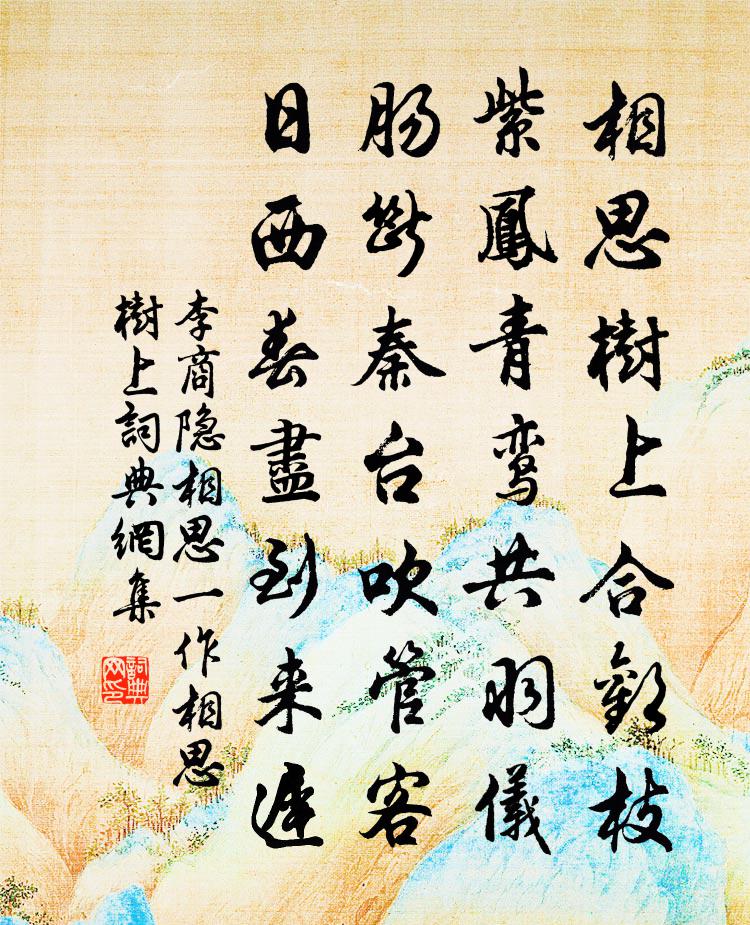 相思樹上合歡枝
紫鳳青鸾共羽儀
肠斷秦台吹管客
日西春盡到来遲
李商隐相思一作相思
樹上詞典網集
詞典網印